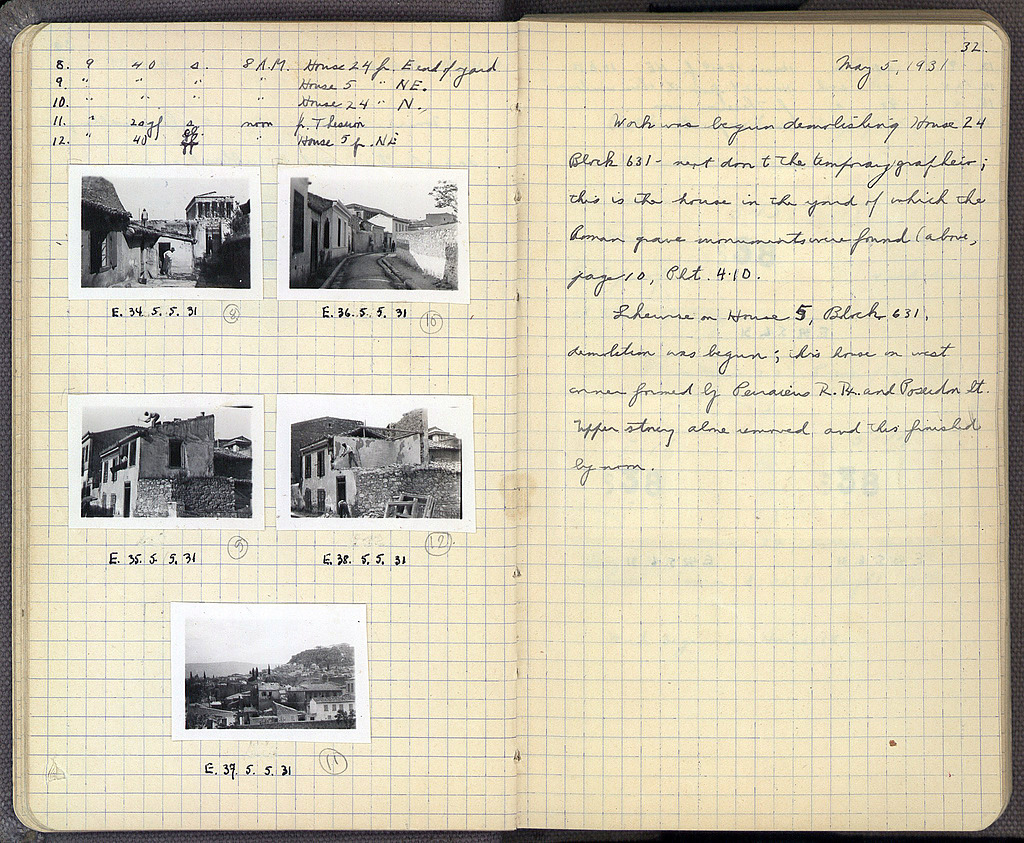 8. 9 40 s. 8 A.M. House 24 fr. E end of yard
9. " " " " House 5 " NE.
10. " " " " House 24 " N.
11. " 20 yf s. noon fr. Theseion
12. " 40 " House 5 fr. NE
E. 34. 5. 5. 31 8
E. 36. 5. 5. 31 10
E. 35. 5. 5. 31 9
E. 38. 5. 5. 31 12
E. 37. 5. 5. 31 11
32.
May 5, 1931
Work was begun demolishing House 24
Block 631 - next door to the temporary grapheio;
this is the house in the yard of which the
Roman grave monuments were found (above,
page 10, Plt. 4.10.
Likewise on House 5, Block 631,
demolition was begun; this house on west
corner formed by Peiraieus R.R. and Poseidon St.
Upper storey alone removed and this finished
by noon.